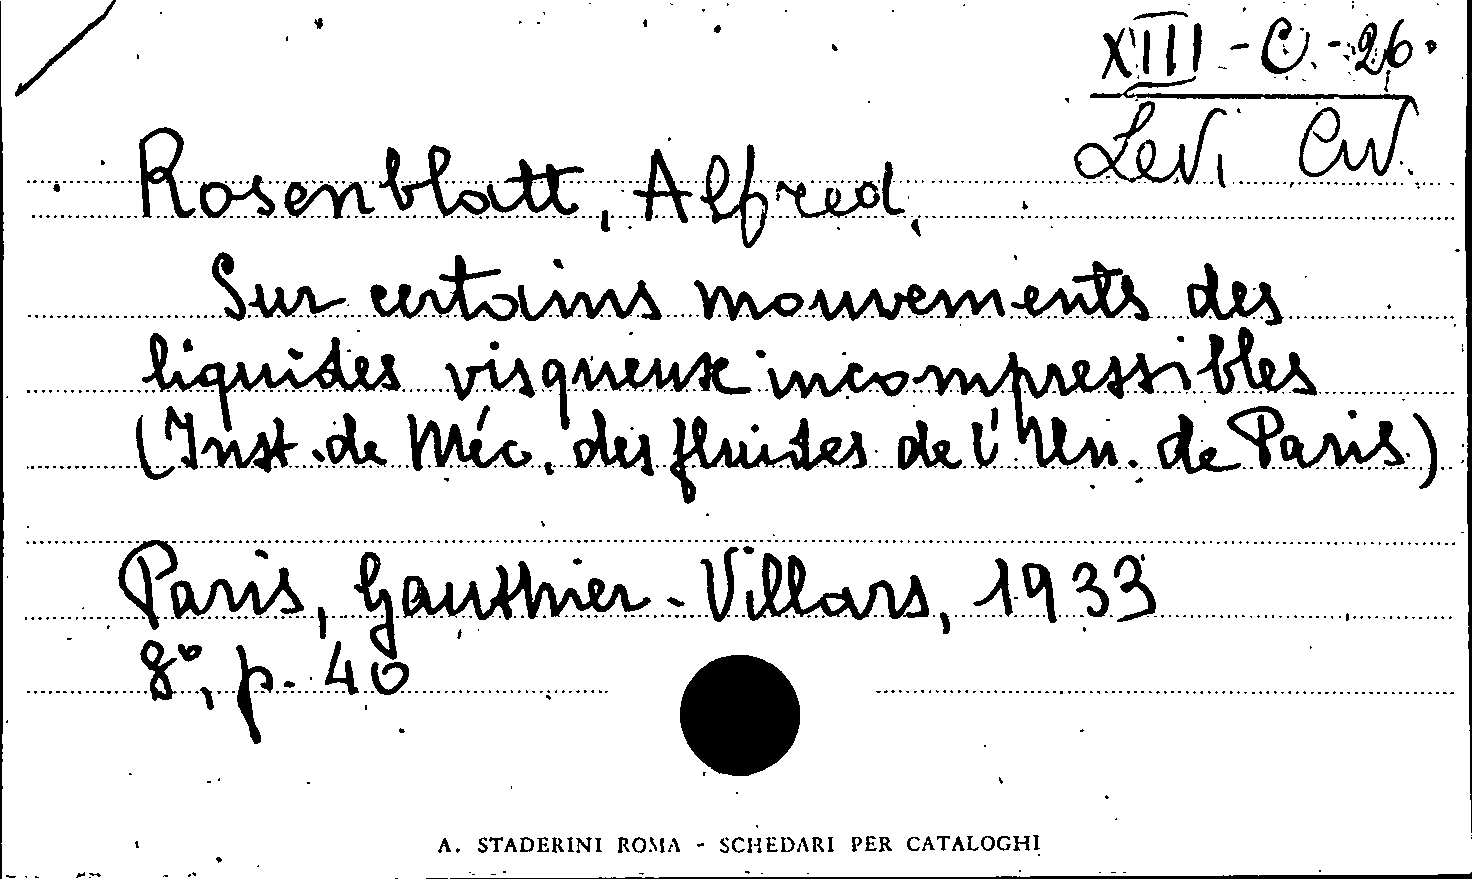 XIII - C. - 26.
Levi Civ.
Rosenblatt, Alfred.
Sur certains mouvements des
liquides visqueux incompressibles
(Inst. de Méc. des fluides de l'Un. de Paris)
Paris, Gauthier-Villars, 1933
8°, p. 40
A. STADERINI ROMA - SCHEDARI PER CATALOGHI